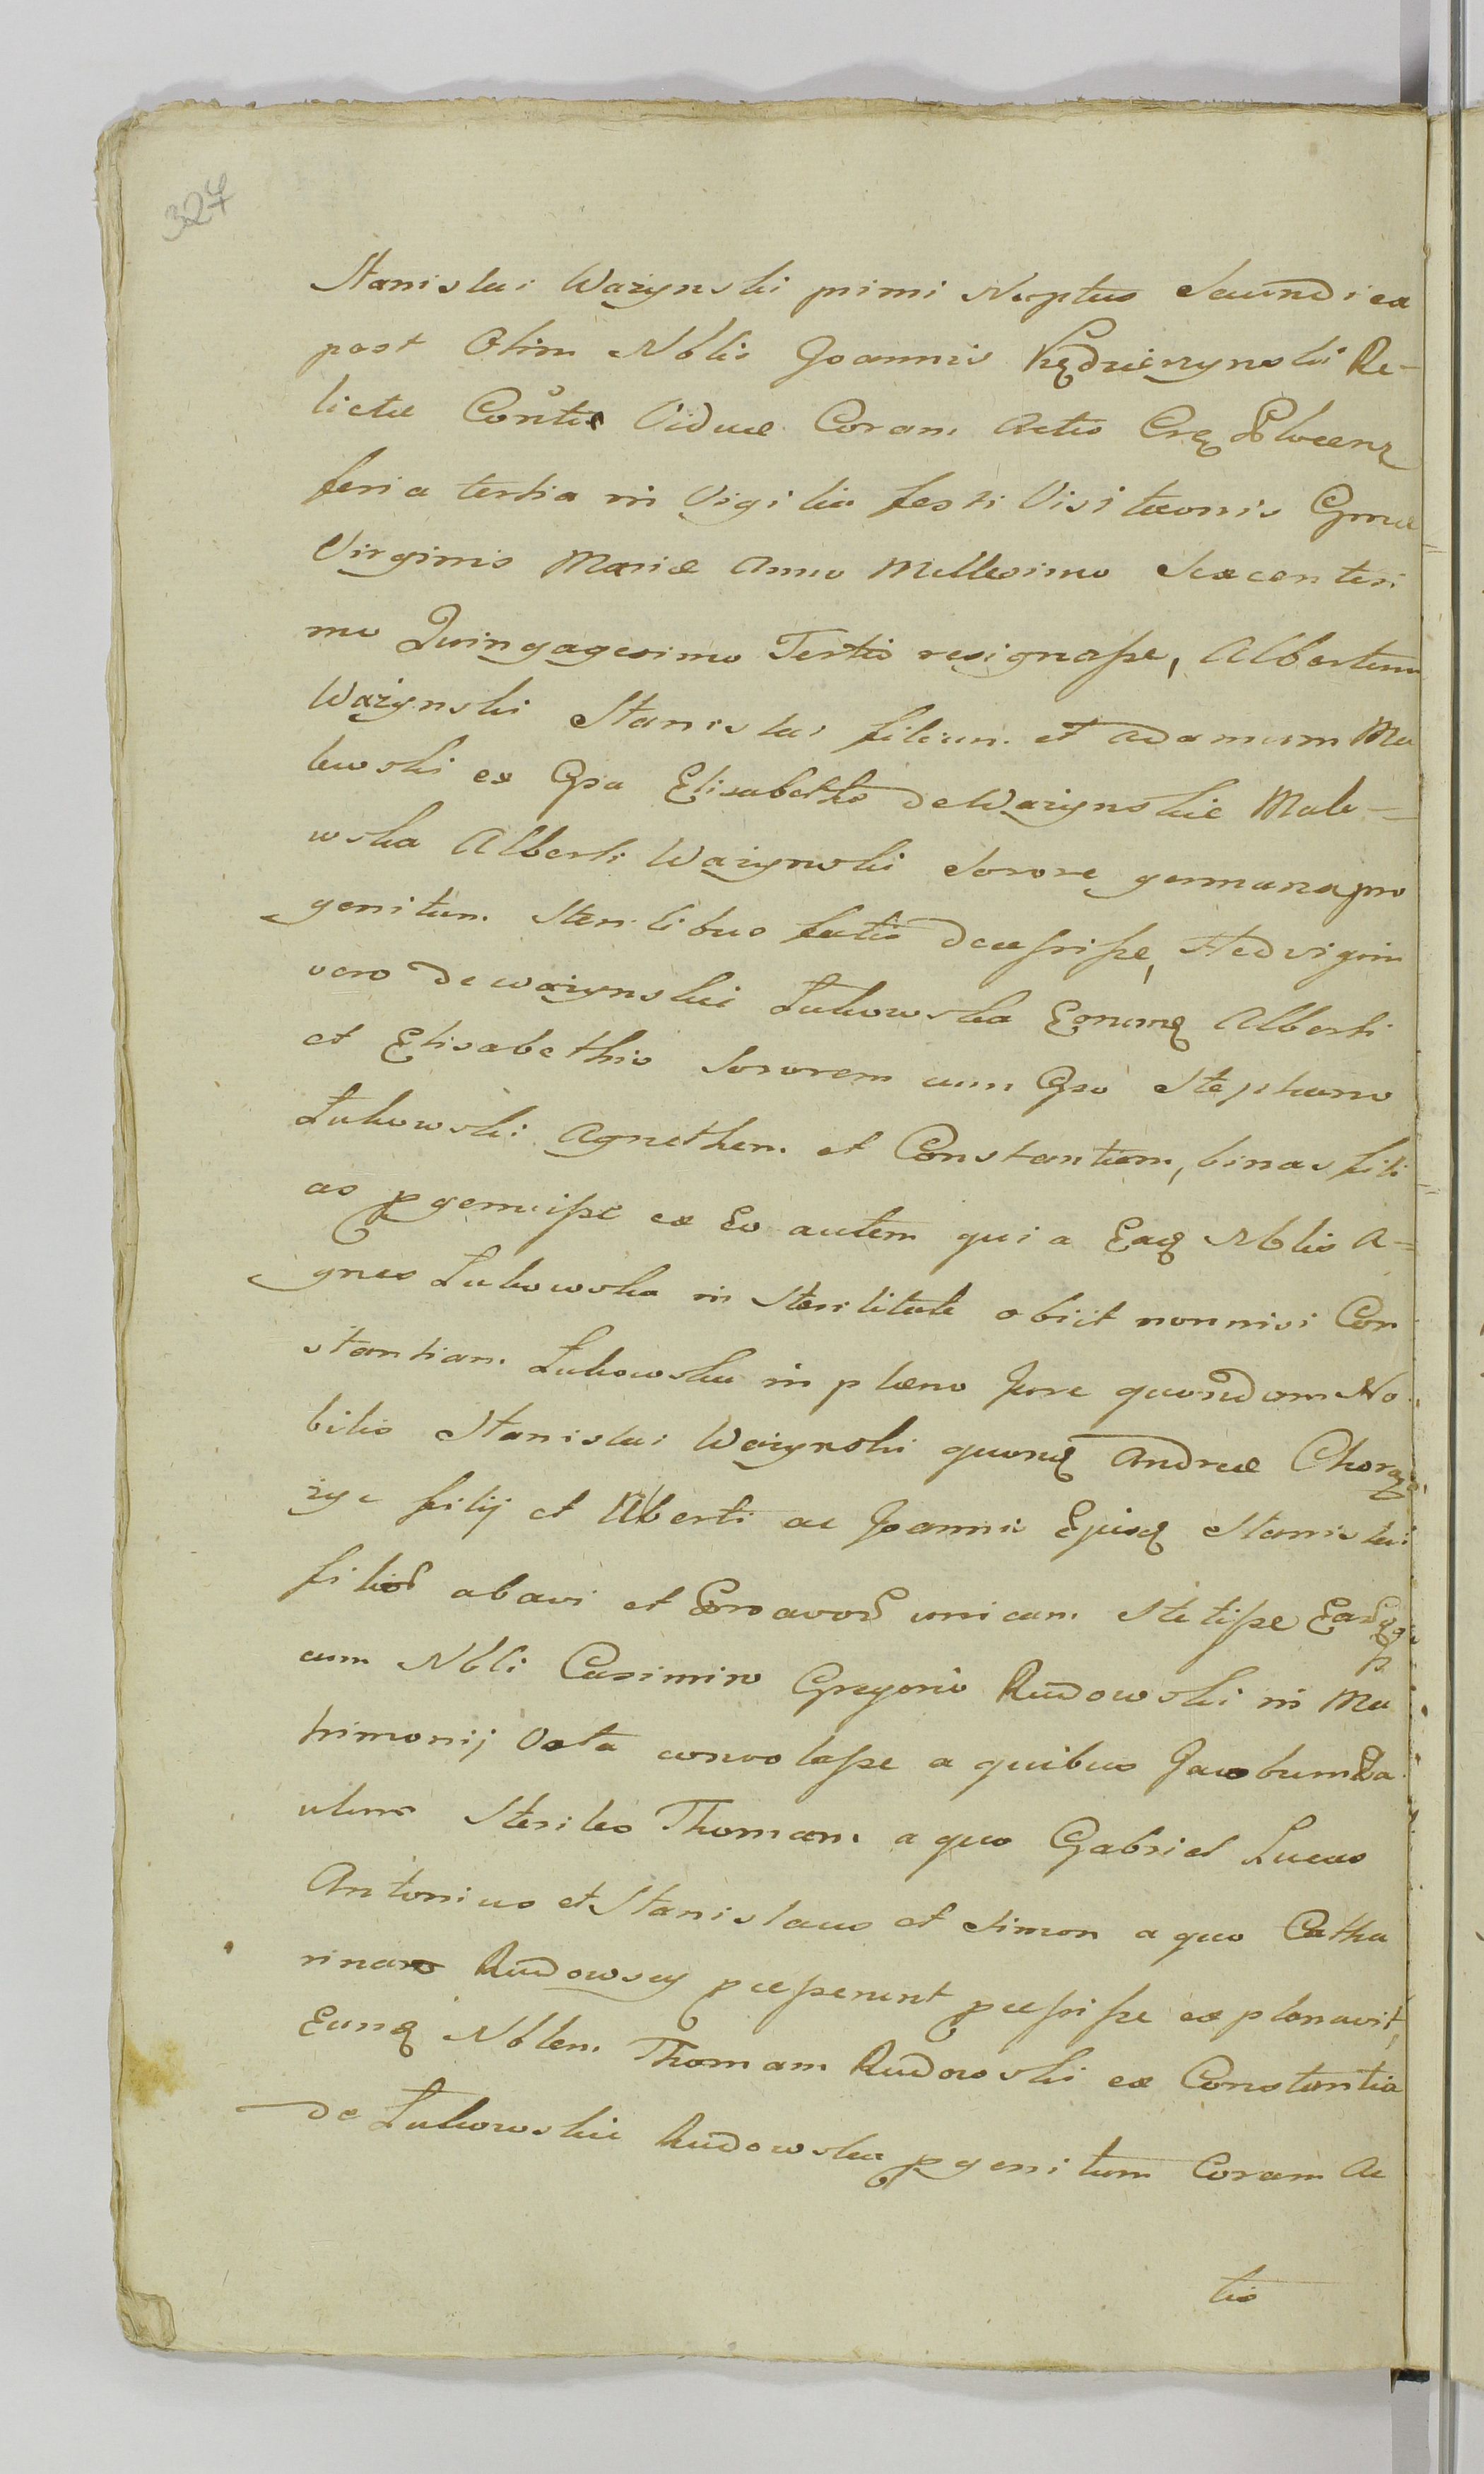 324
Stanislai Ważynski primi Nuptus Secundi ea
post Olim Nblis Joannis Kędzierzynski Re-
lictæ Contis Viduæ Coram Actis Plocens
feria tertia in Vigilia festi Visitaonis Gmæ
Virginis Mariæ Anno Millesimo Sexcentesi
mo Quingagesimo Tertio resignaße, Albertum
Ważynski Stanislai filium et Adamum Ma
lewski ex Gsa Elisabetha de Ważynskie Male=
wska Alberti Ważynski Sorore germana pro
genitum Sterilibus fatis deceßiße, Hedvigim
vero de ważynskie Łukowska Alberti
et Elisabethis Sororem cum Gso Stephano
Łukowski Agnethem et Constantiam, binas fili
as pgenuiße ex Eo autem quia Eaq Nblis A=
gnes Łukowska in Sterilitate obiit nonnisi Con
stantiam Łukowska in plæno Jure quondam No
bilis Stanislai Ważynski quonq Andreæ Chorą
życ filij et Alberti ac Joannis Ejusq Stanislai
filior abavi et Proavor unicam Stetiße
cum Nbli Casimiro Gregorio Rudowski in Ma
trimonij Vota convolaße a quibus Jacobum Pa
ulum Steriles Thomam a quo Gabriel Lucas
Antonius et Stanislaus et Simon a quo Catha
rinam Rudowscy pceßerunt pceßiße explanavit,
Eunq Nblem Thomam Rudowski ex Constantia
de Łukowskie Rudowska pgenitum Coram Ac
tis